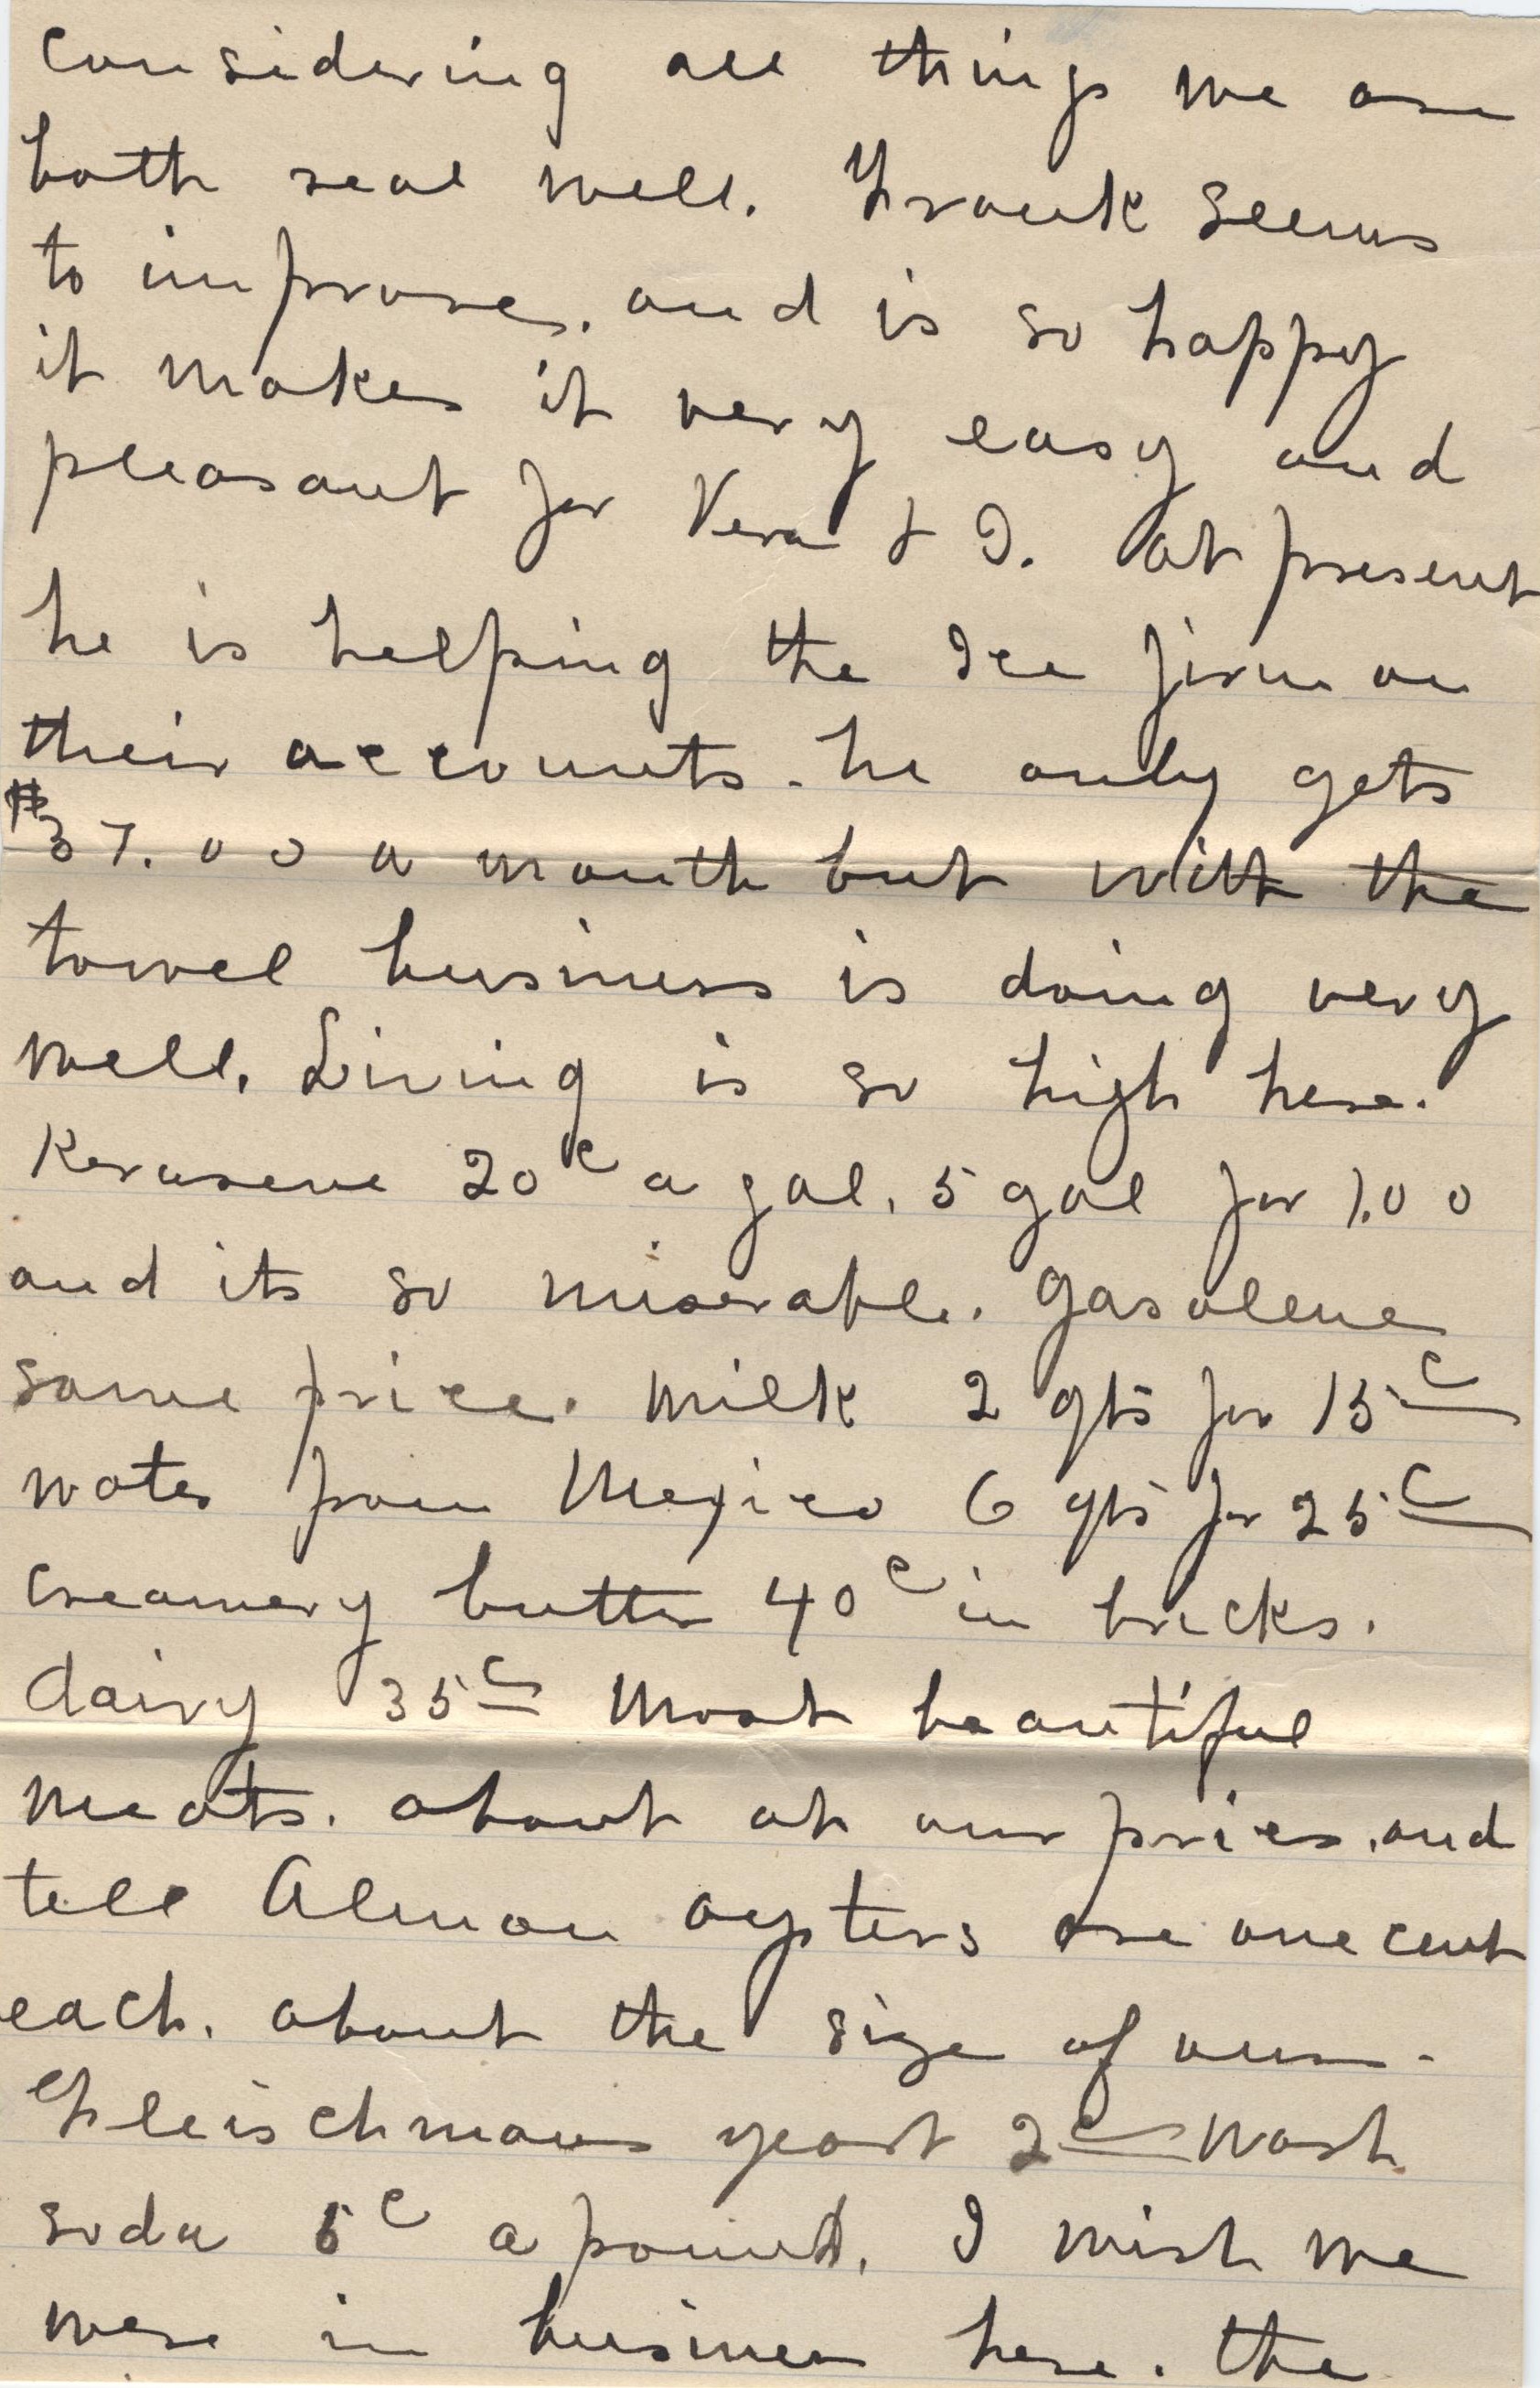 considering all things we are
both real well. Frank seems
to improve, and is so happy
it makes it very easy and
pleasant for Vera & I. At present
he is helping the Ice firm on
their accounts. he only gets
$37.00 a month but with the
towel business is doing very
well. Living is so high here.
Kerosene 20c a gal, 5 gal for 1.00
and its so miserable. Gasolene
same price. Milk 2 qts for 15c
water from Mexico 6 qts for 25c
creamery butter 40c in bricks.
dairy 35c most beautiful
meats. about at our prices, and
tell Almon oysters are one cent
each. about the size of ours.
Fleischmans yeast 2c wash
soda 5c a pound. I wish we
were in business here. the